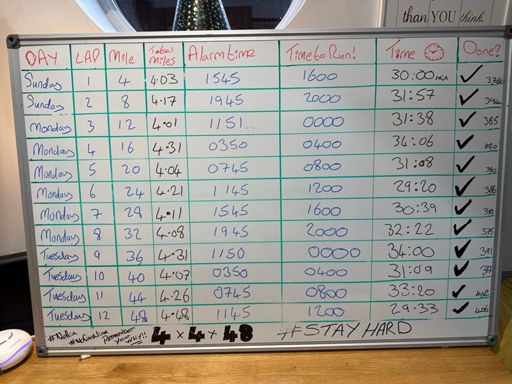 than YOU think.
DAY LAP Mile Total miles Alarm time Time to Run! Time Done?
Sunday 1 4 4.03 1545 1600 30:00 min ✓
Sunday 2 8 4.17 1945 2000 31:57 ✓
Monday 3 12 4.01 1151.. 0000 31:38 ✓ 365
Monday 4 16 4.31 0350 0400 34:06 ✓
Monday 5 20 4.04 0745 0800 31:08 ✓
Monday 6 24 4.21 1145 1200 29:20 ✓
Monday 7 28 4.11 1545 1600 30:39 ✓
Monday 8 32 4.08 1945 2000 32:22 ✓ 375
Tuesday 9 36 4.31 1150 0000 34:00 ✓ 391
Tuesday 10 40 4.07 0350 0400 31:09 ✓
Tuesday 11 44 4.26 0745 0800 33:20 ✓
Tuesday 12 48 4.08 1145 1200 29:33 ✓ 406
Remember your why!! 4 x 4 x 48 #STAY HARD